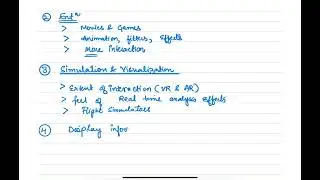 ② Entⁿ
> Movies & Games
> Animation, filters, effects
> More interaction
③ Simulation & Visualization
> Extent of Interaction (VR & AR)
> feel of Real time analysis effects
> Flight Simulators
④ Display infor